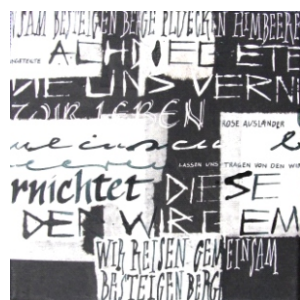 SAM BESTEIGEN BERGE PLUECKEN HIMBEERE
ACHDIEGETE
DIE UNS VERNI
WIR LEBEN
ROSE AUSLÄNDER
LASSEN UNS TRAGEN VON DEN WIN
rnichtet DIESE
DER WIR EM
WIR REISEN GEMEINSAM
BESTEIGEN BERG